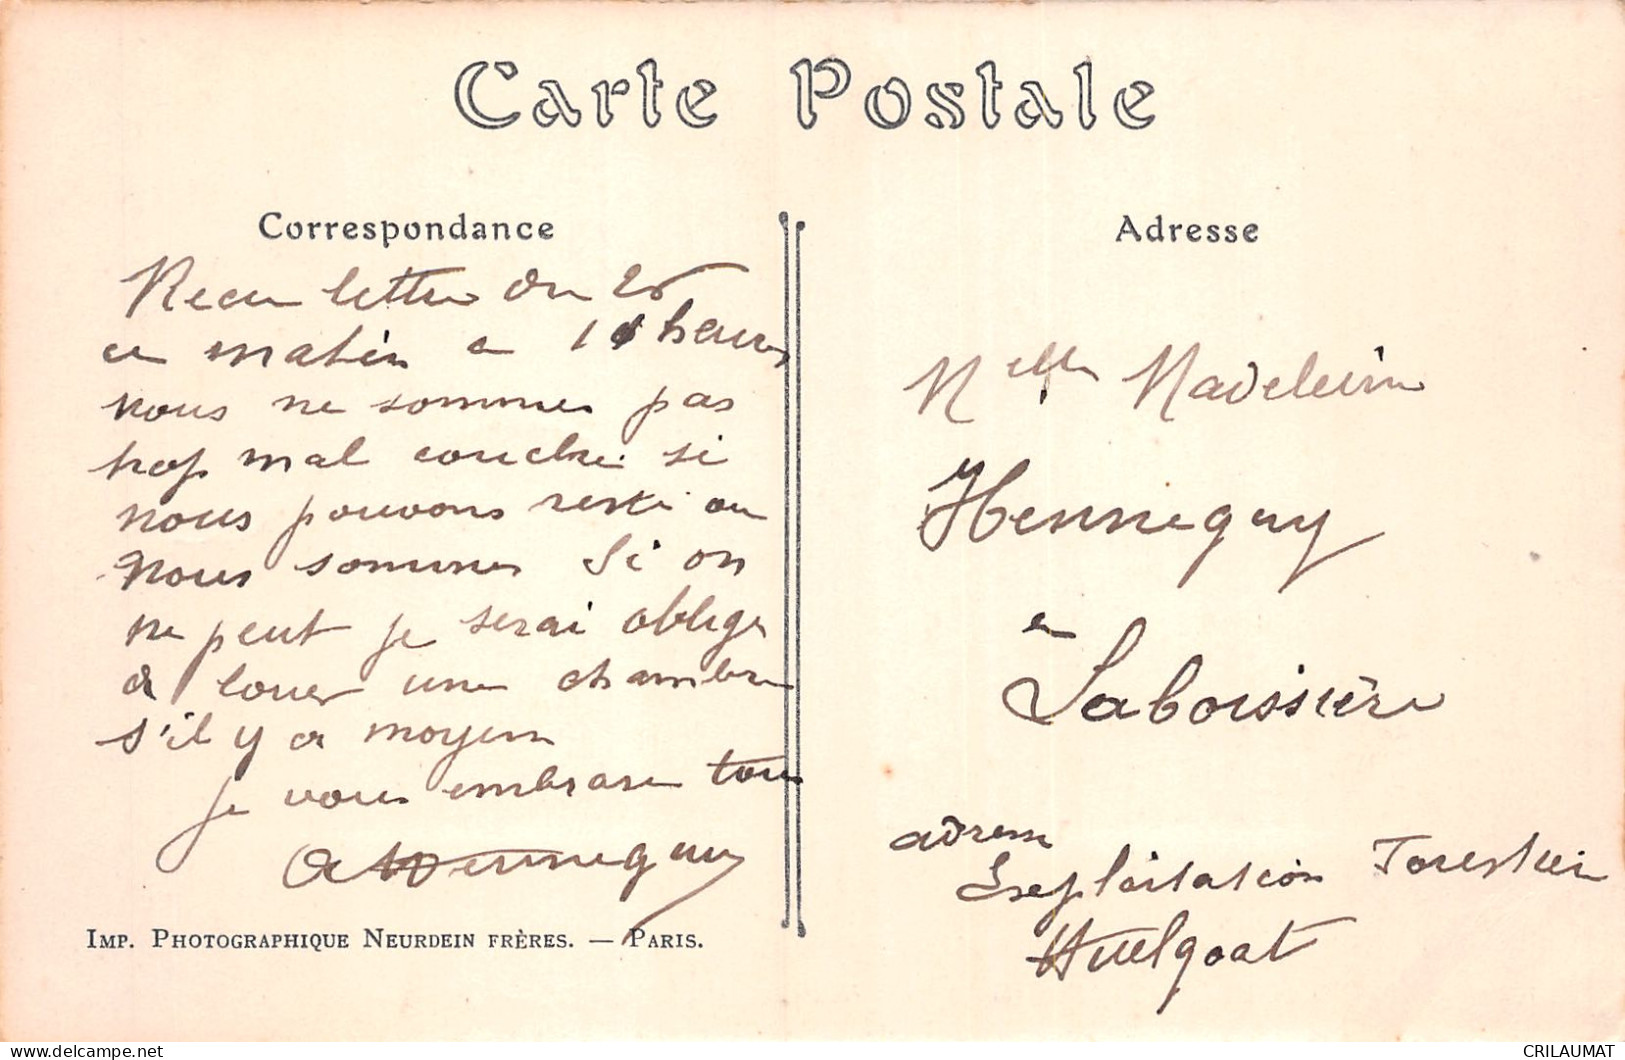 Carte Postale
Correspondance
Recu lettre du 26
ce matin a 11 heures
nous ne sommes pas
trop mal couche si
nous pouvons reste ou
nous sommes Si on
ne peut je serai oblige
de louer une chambre
s'il y a moyen
je vous embrasse tous
A Henneguy
IMP. PHOTOGRAPHIQUE NEURDEIN FRÈRES. — PARIS.
Adresse
Melle Madeleine
Henneguy
a
Laboissière
adresse
Exploitation Forestier
Huelgoat
CRILAUMAT